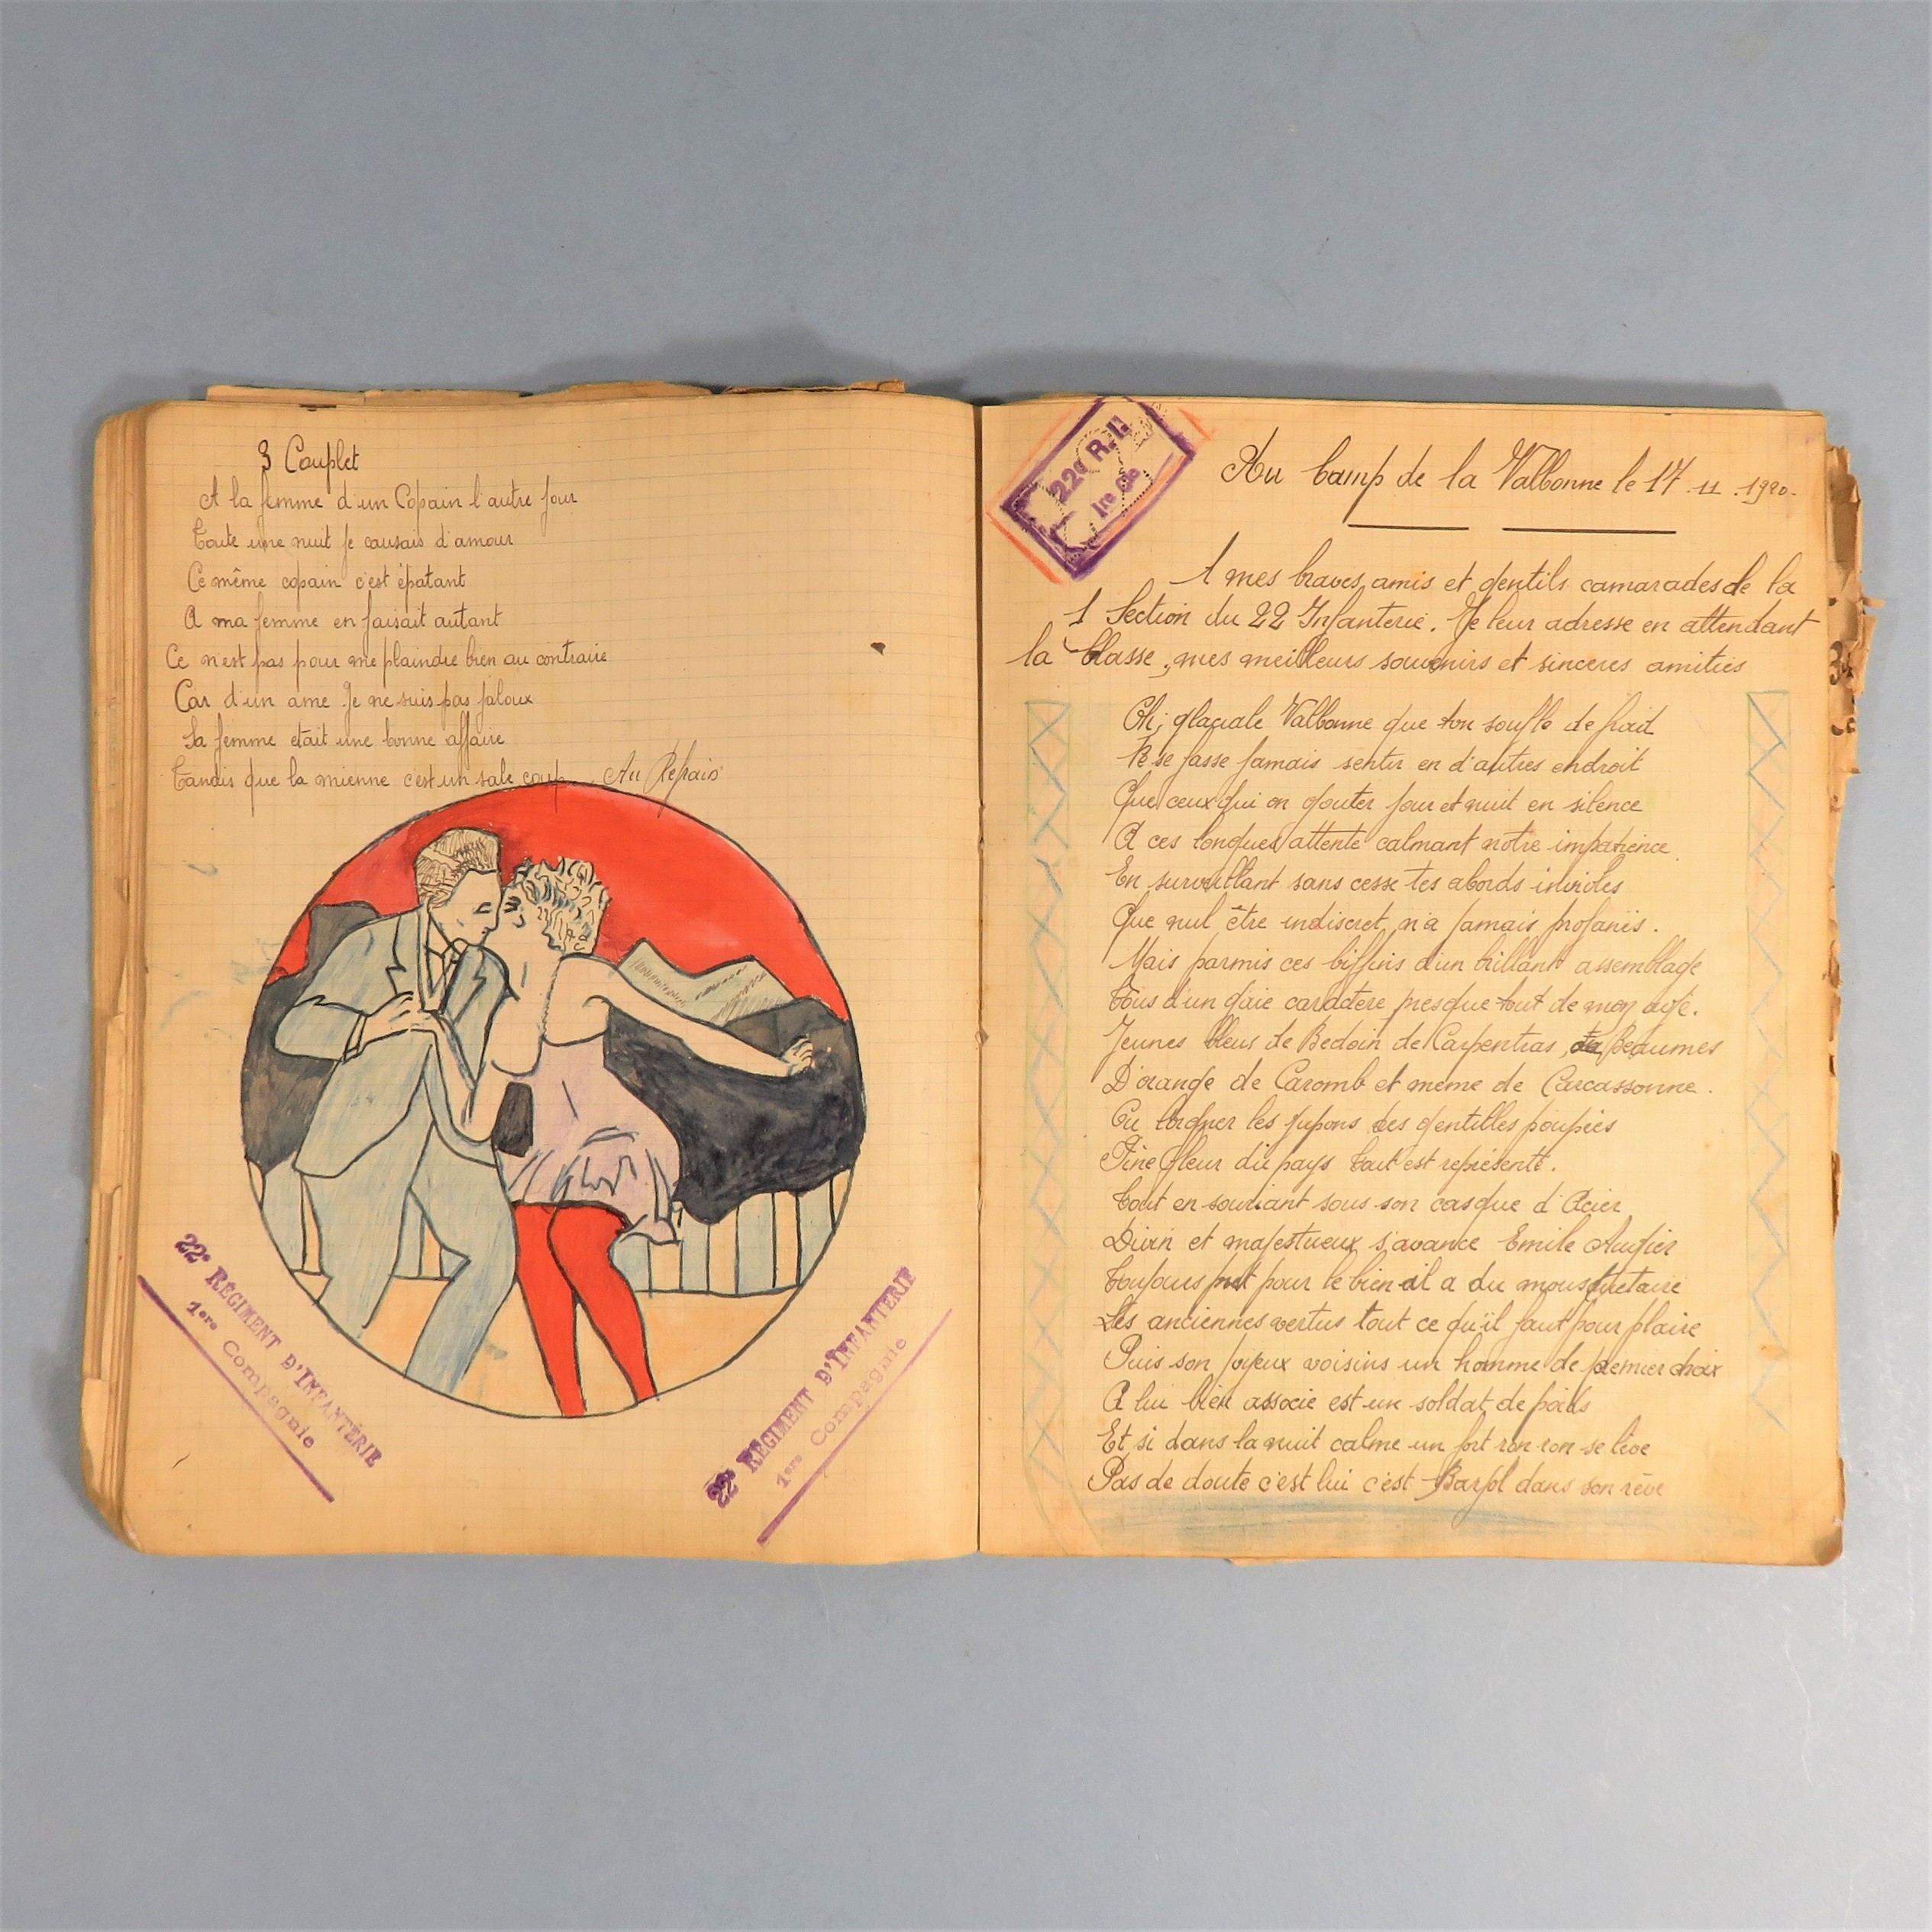 3 Couplet
A la femme d'un Copain l'autre jour
Toute une nuit je causais d'amour
Ce même copain c'est épatant
A ma femme en faisait autant
Ce n'est pas pour me plaindre bien au contraire
Car d'un ame je ne suis pas jaloux
Sa femme etait une bonne affaire
Tandis que la mienne c'est un sale coup. Au Refrain
22e RÉGIMENT D'INFANTERIE
1ere Compagnie
22e RÉGIMENT D'INFANTERIE
1ere Compagnie
22e R.I.
1re Cie
Au Camp de la Valbonne le 17.11.1920.
A mes braves amis et gentils camarades de la
1 Section du 22 Infanterie. Je leur adresse en attendant
la Classe, mes meilleurs souvenirs et sinceres amitiés
Oh; glaciale Valbonne que ton souffle de froid
Ne se fasse jamais sentir en d'autres endroit
Que ceux qui on gouter jour et nuit en silence
A ces longues attente calmant notre impatience
En surveillant sans cesse tes abords inviolés
Que nul être indiscret n'a jamais profanés.
Mais parmis ces biffins d'un brillant assemblage
Tous d'un gaie caractère presque tout de mon age.
Jeunes bleus de Bedoin de Carpentras, de Beaumes
D'orange de Caromb et meme de Carcassonne.
Ou lorgner les jupons des gentilles poupées
Fine fleur du pays tout est représenté.
Tout en souriant sous son casque d'Acier
Divin et majestueux s'avance Emile Augier
Toujours pret pour le bien il a du mousquetaire
Les anciennes vertus tout ce qu'il faut pour plaire
Puis son joyeux voisins un homme de premier choix
A lui bien associe est un soldat de poids
Et si dans la nuit calme un fort ron ron se lève
Pas de doute c'est lui c'est Barjol dans son rêve